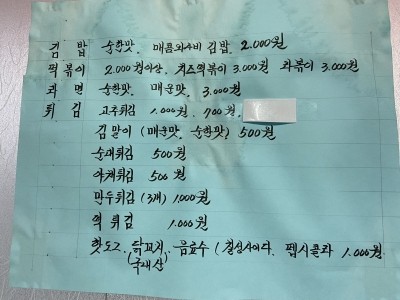 김 밥 순한맛, 매콤와사비 김밥, 2.000원
떡볶이 2.000원이상, 치즈떡볶이 3.000원 라볶이 3.000원
라 면 순한맛, 매운맛, 3.000원
튀 김 고추튀김 1.000원, 700원,
김말이 (매운맛, 순한맛) 500원
순대튀김 500원
야채튀김 500원
만두튀김 (3개) 1,000원
떡 튀김 1.000원
핫도그, 닭꼬치, 음료수 ( 칠성사이다, 펩시콜라 1.000원
(국내산)